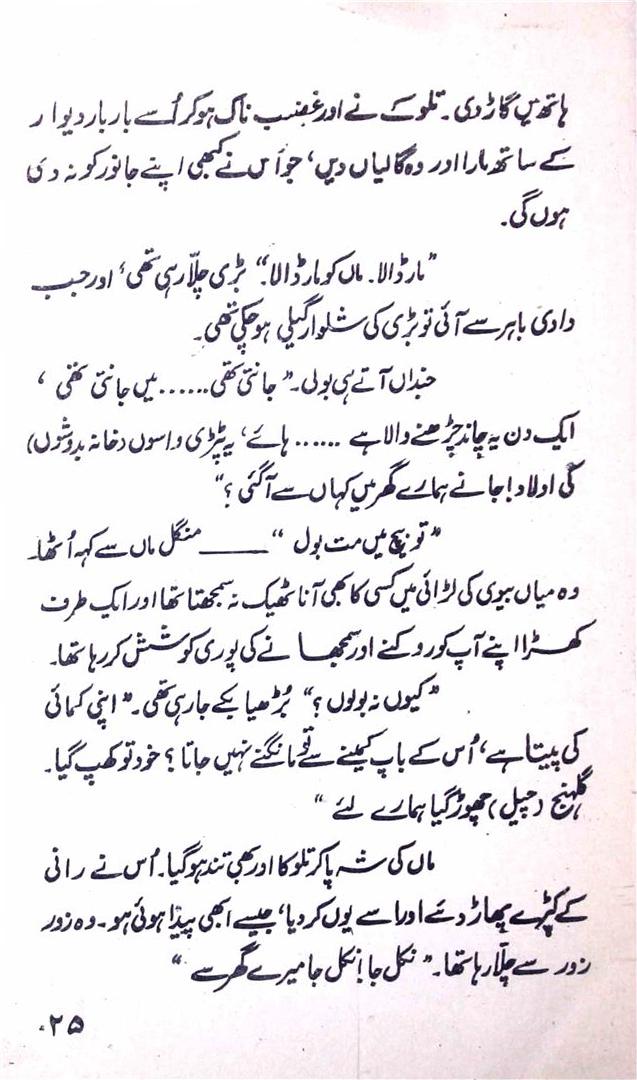 ہاتھ میں گاڑ دی۔ تلوکے نے اور غضب ناک ہو کر اُسے بار بار دیوار
کے ساتھ مارا اور وہ گالیاں دیں، جو اُس نے کبھی اپنے جانور کو نہ دی
ہوں گی۔
”مار ڈالا۔ ماں کو مار ڈالا۔“ بڑی چلّا رہی تھی، اور جب
دادی باہر سے آئی تو بڑی کی شلوار گیلی ہو چکی تھی۔
جنداں آتے ہی بولی۔ ”جانتی تھی...... میں جانتی تھی،
ایک دن یہ چاند چڑھنے والا ہے ...... ہائے، یہ ٹپڑی واسوں (خانہ بدوشوں)
کی اولاد! جانے ہمارے گھر میں کہاں سے آگئی؟“
”تو بیچ میں مت بول“ ——— منگل ماں سے کہہ اُٹھا۔
وہ میاں بیوی کی لڑائی میں کسی کا بھی آنا ٹھیک نہ سمجھتا تھا اور ایک طرف
کھڑا اپنے آپ کو روکنے اور سمجھانے کی پوری کوشش کر رہا تھا۔
”کیوں نہ بولوں؟“ بُڑھیا بکے جا رہی تھی۔ ”اپنی کمائی
کی پیتا ہے، اُس کے باپ کمینے سے تو مانگنے نہیں جاتا؟ خود تو کھپ گیا۔
گلہنج (چپل) چھوڑ گیا ہمارے لئے“
ماں کی شہ پا کر تلوکا اور بھی تند ہو گیا۔ اُس نے رانی
کے کپڑے پھاڑ دئے اور اسے یوں کر دیا، جیسے ابھی پیدا ہوئی ہو۔ وہ زور
زور سے چلّا رہا تھا۔ ”نکل جا! نکل جا میرے گھر سے“
۲۵